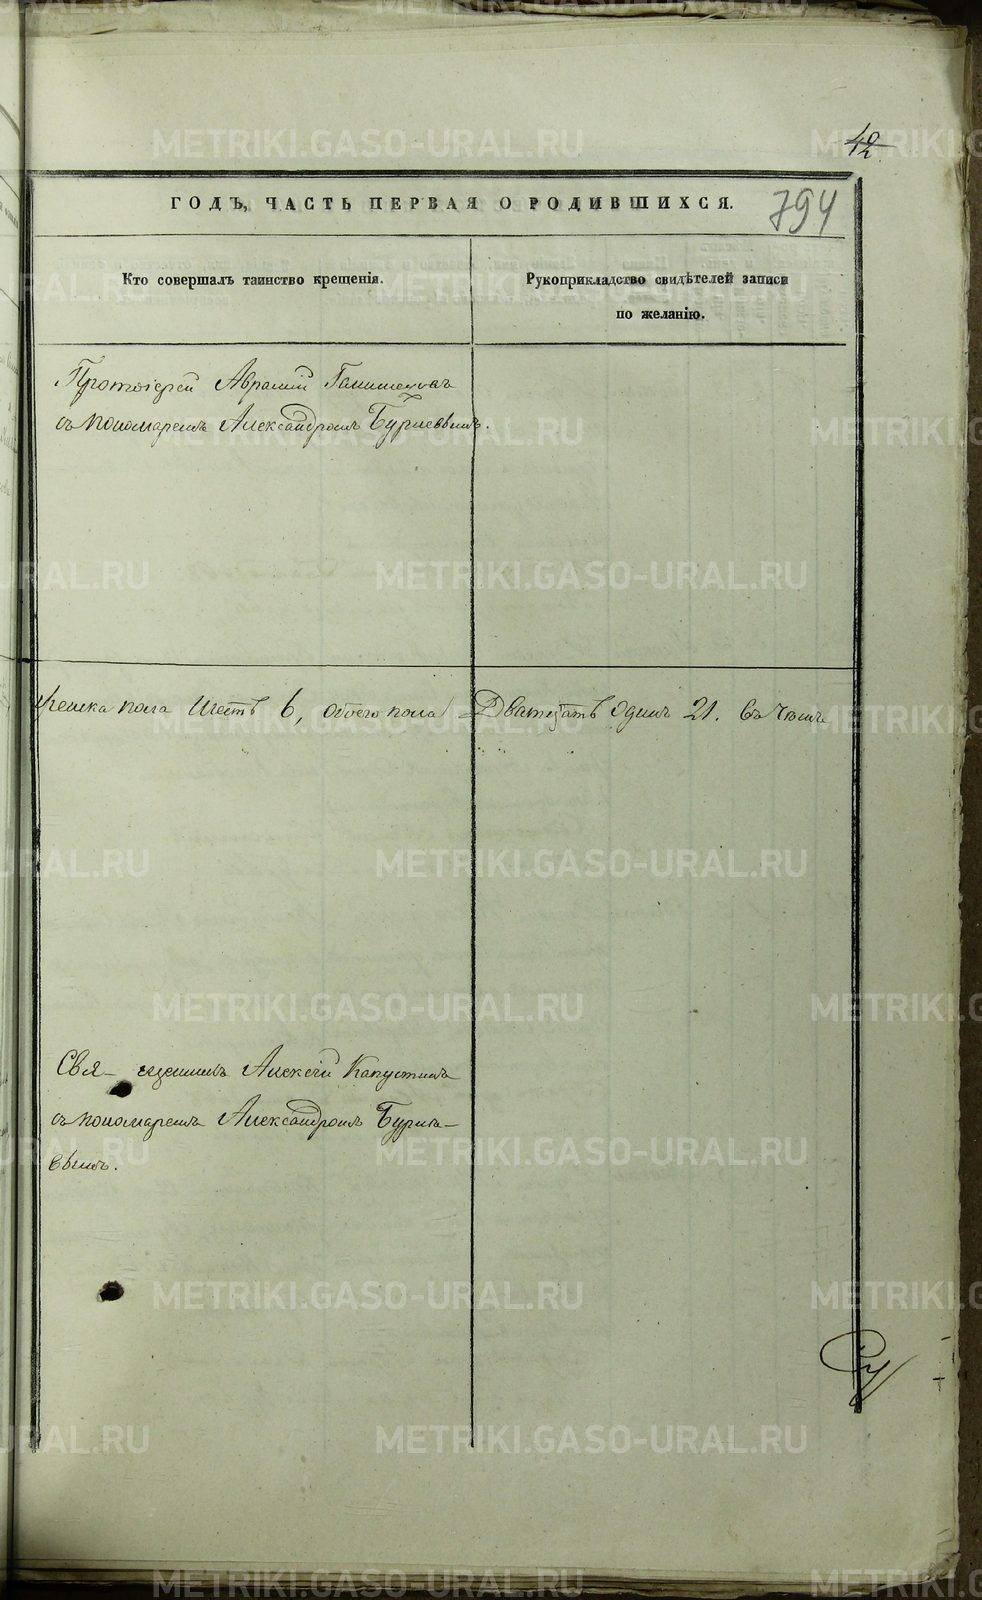 42
ГОДЪ, ЧАСТЬ ПЕРВАЯ О РОДИВШИХСЯ.
794
Кто совершалъ таинство крещенія.
Рукоприкладство свидѣтелей записи
по желанію.
Протоіерей Аврамій
съ пономаремъ Александромъ Бурневымъ.
женска пола Шесть 6, обоего пола Двадцать одинъ 21. Въ чемъ
Священникъ Алексій Капустинъ
съ пономаремъ Александромъ Бурне-
вымъ.
METRIKI.GASO-URAL.RU